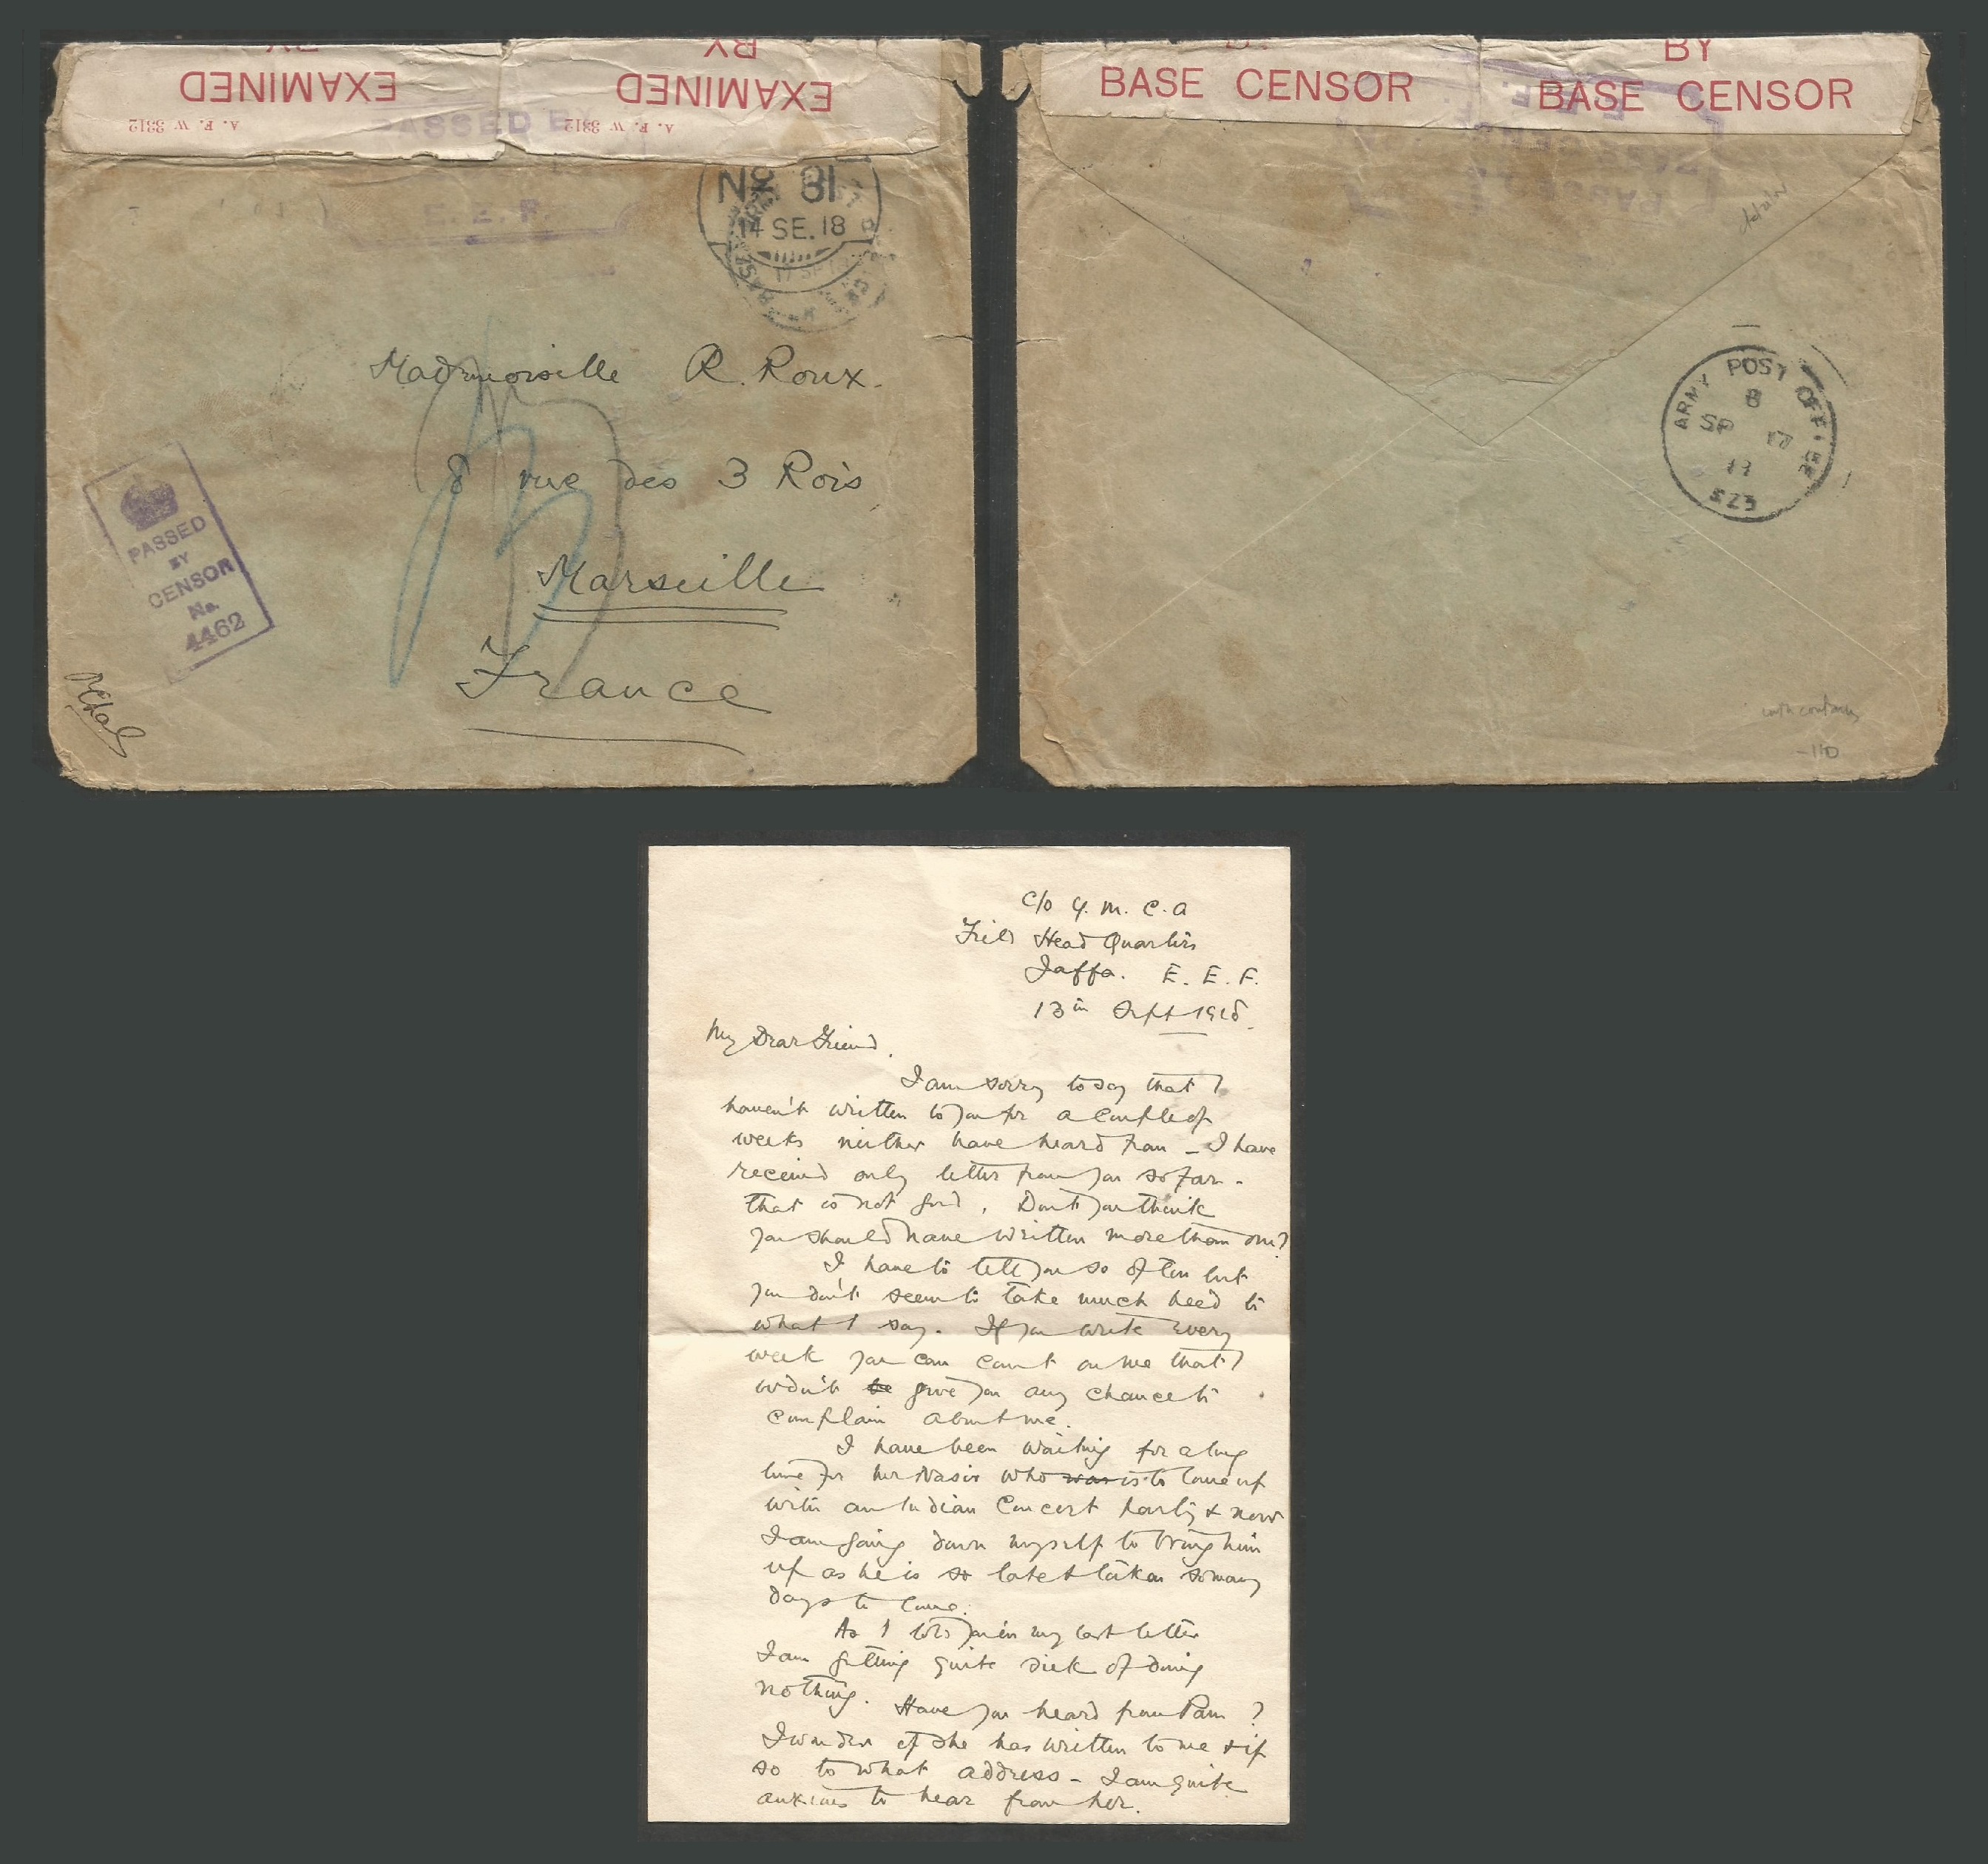 EXAMINED
BY
EXAMINED
BY
A. F. W 3312
A. F. W 3312
PASSED B
E. E. F.
No 81
14 SE. 18
Mademoiselle R. Roux.
8 rue des 3 Rois
Marseille
France
PASSED
BY
CENSOR
No.
4462
BY
BASE CENSOR
BASE CENSOR
PASSED
ARMY POST OFFICE
8
SP 17
11
SZ3
with contents
-110
c/o Y. M. C. A
Field Head Quarters
Jaffa. E. E. F.
13th Sept 1918.
My Dear Friend,
I am sorry to say that I
haven't written to you for a couple of
weeks neither have heard from - I have
received only letter from you so far -
that is not good. Don't you think
you should have written more than one?
I have to tell you so often but
you don't seem to take much heed to
what I say. If you write every
week you can count on me that I
wdn't be give you any chance to
complain about me.
I have been waiting for a long
time for who was is to come up
with an Indian Concert Party & now
I am going down myself to bring him
up as he is so late & taken so many
days to come.
As I told you in my last letter
I am getting quite sick of doing
nothing. Have you heard from Pam?
I wonder if she has written to me & if
so to what address - I am quite
anxious to hear from her.